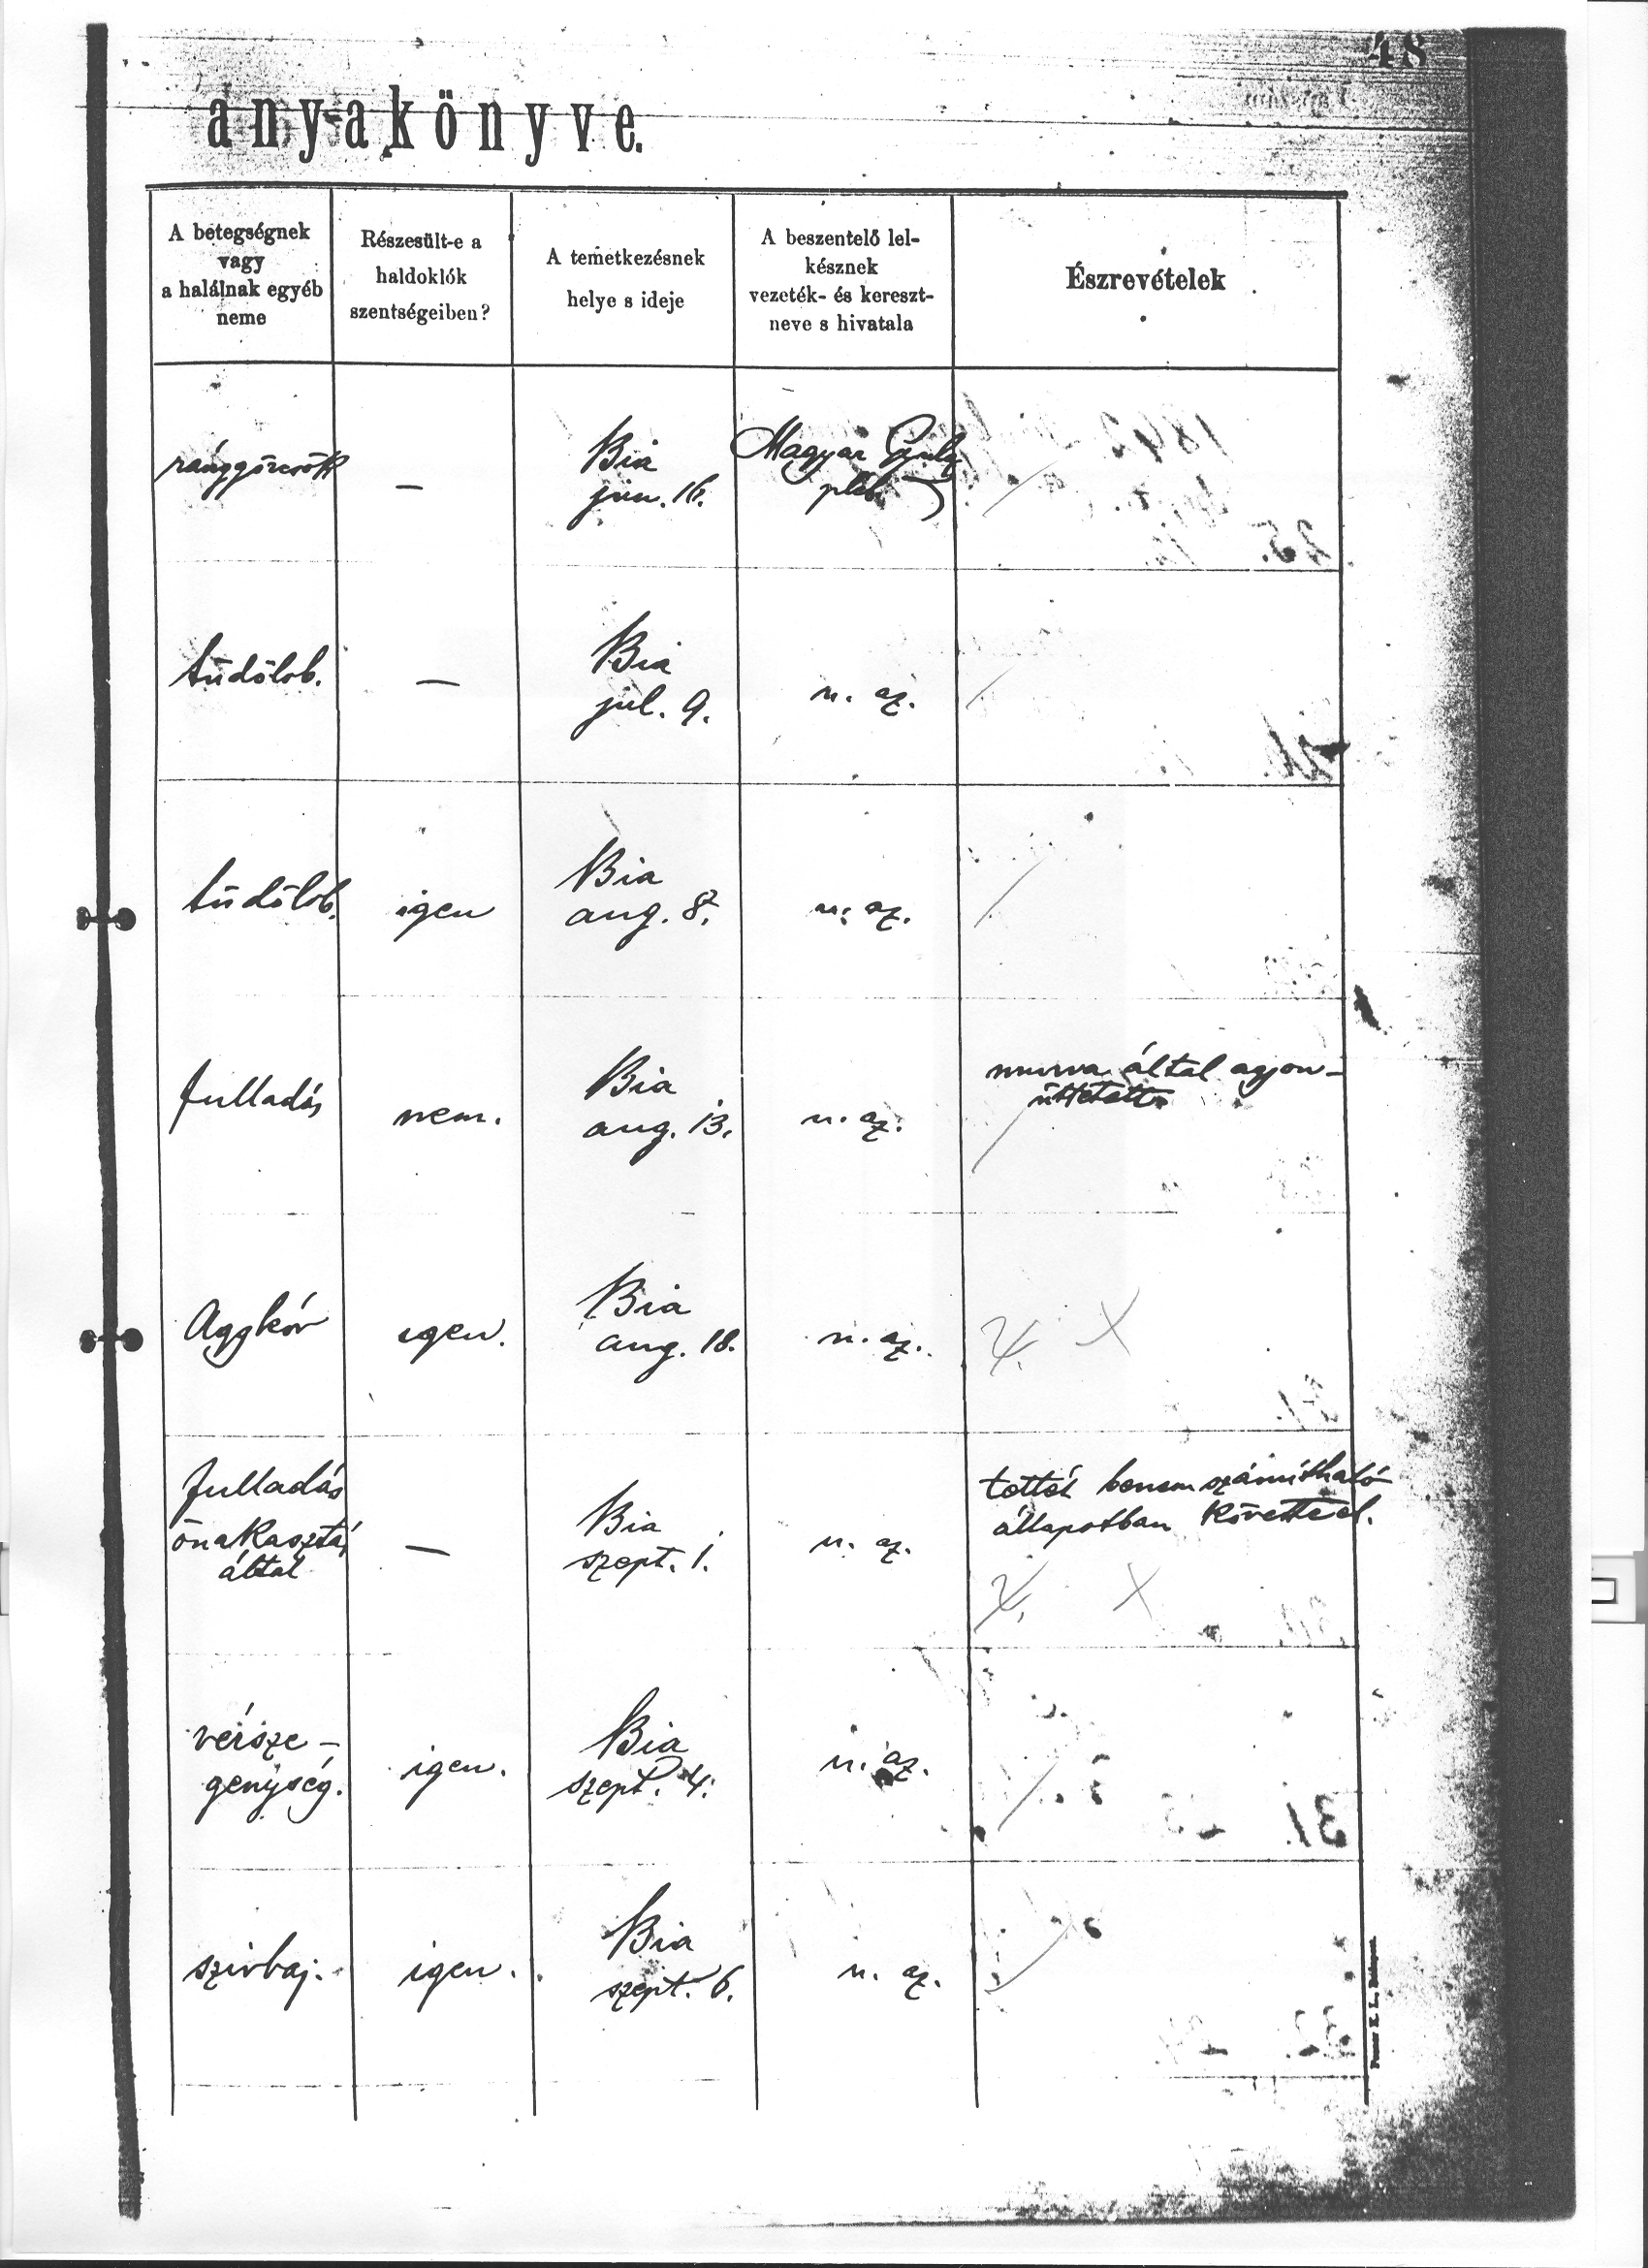 48
anyakönyve.
A betegségnek
vagy
a halálnak egyéb
neme
Részesült-e a
haldoklók
szentségeiben?
A temetkezésnek
helye s ideje
A beszentelő lel-
késznek
vezeték- és kereszt-
neve s hivatala
Észrevételek
ránggörcsök
—
Bia
jun. 16.
Magyar Gyula
pléb.
tüdőlob.
—
Bia
jul. 9.
u. az.
tüdőlob.
igen
Bia
aug. 8.
u. az.
fulladás
nem.
Bia
aug. 13.
u. az.
által agyon-
üttetett
Aggkór
igen.
Bia
aug. 18.
u. az.
fulladás
önakasztás
által
—
Bia
szept. 1.
u. az.
tettét benemszámítható
állapotban követte el.
vérsze-
génység.
igen.
Bia
szept. 4.
u. az.
szivbaj.
igen.
Bia
szept. 6.
u. az.